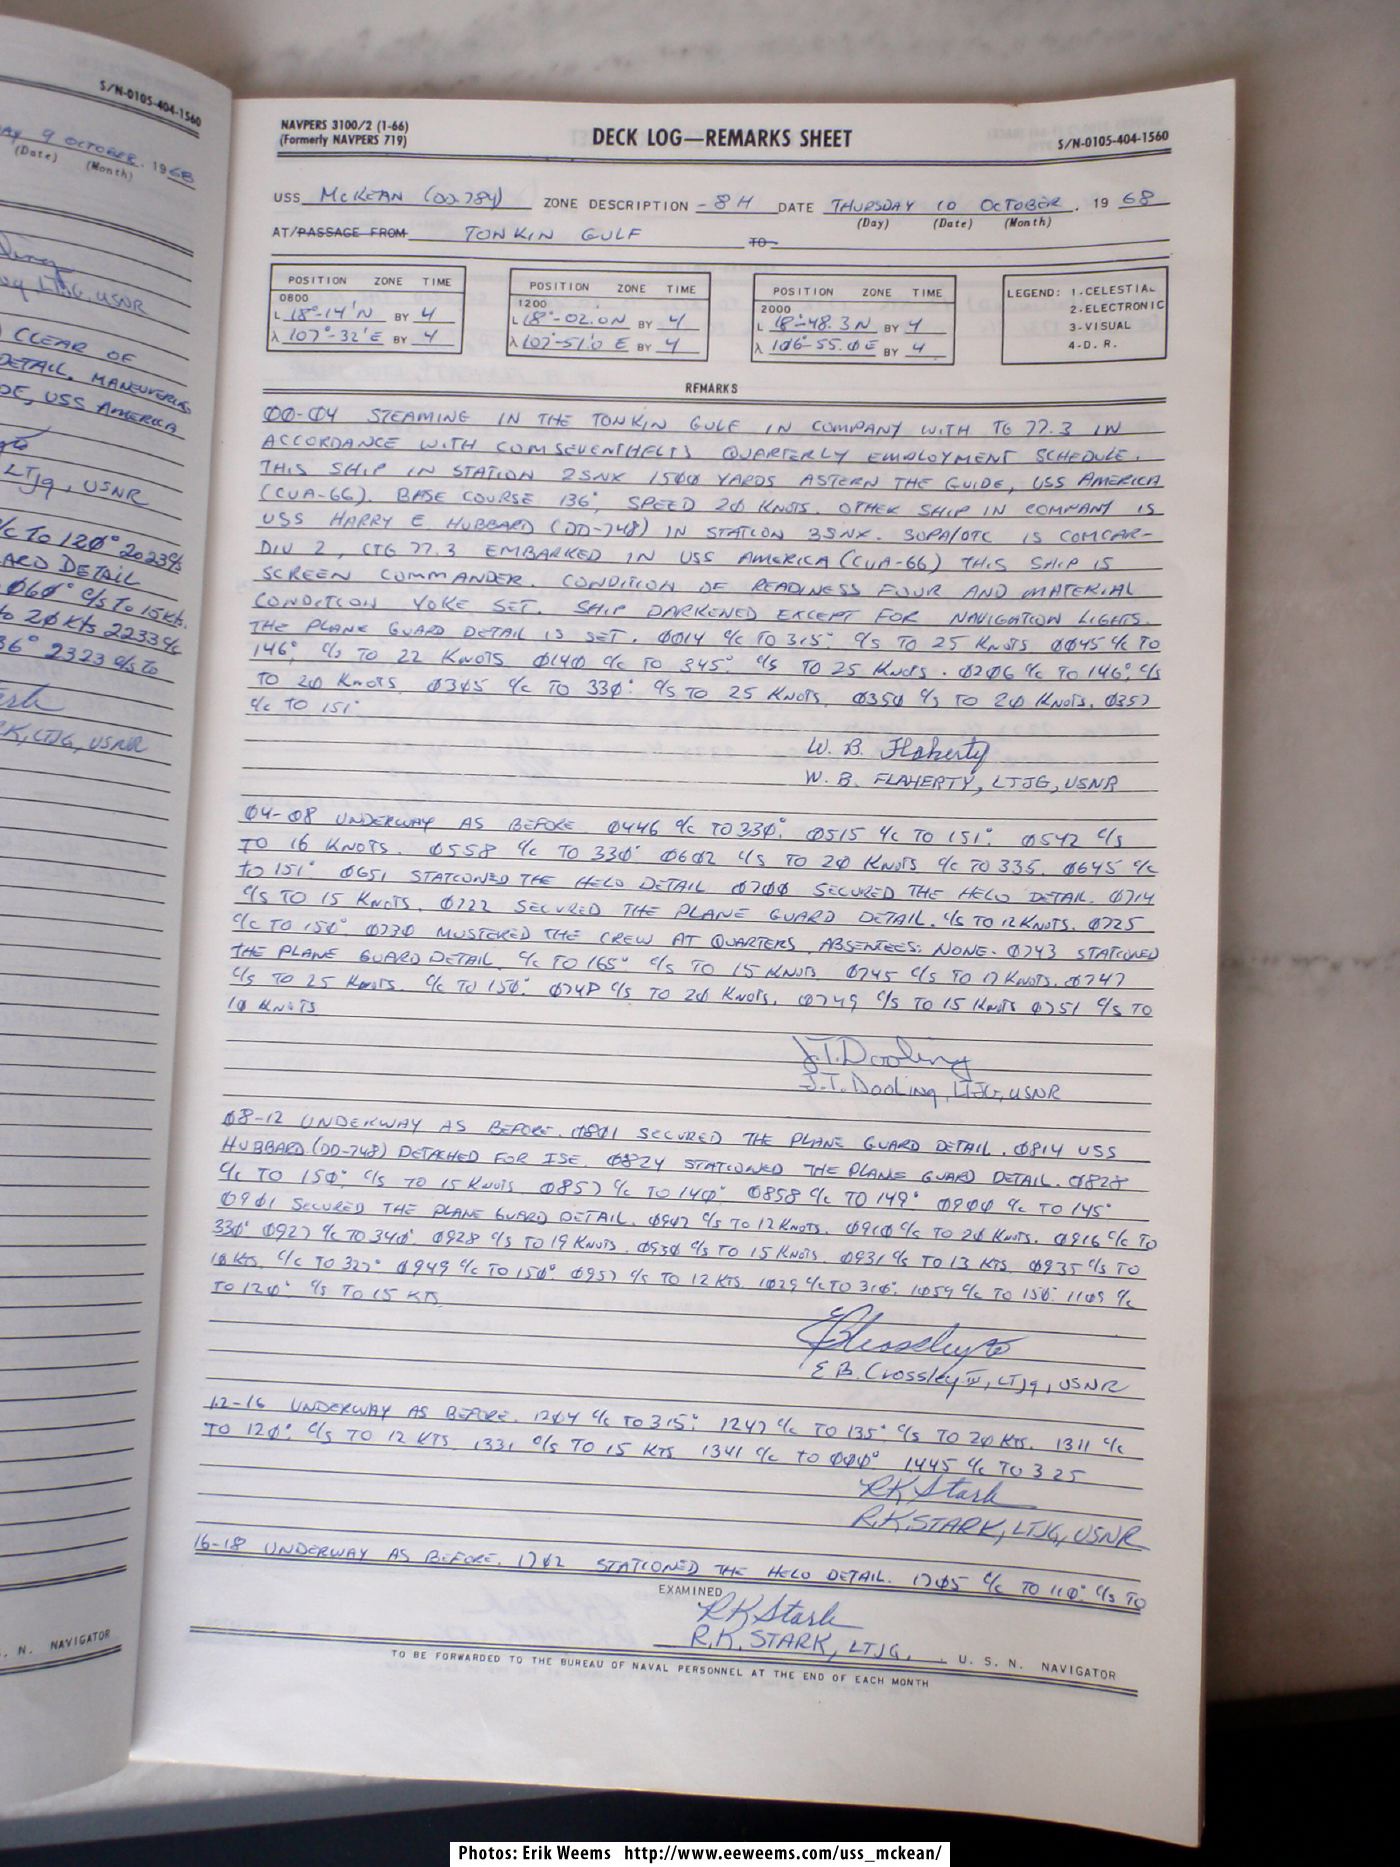 S/N-0105-404-1560
9 OCTOBER 1968
(Date) (Month)
LTJG, USNR
CLEAR OF
DETAIL. MANEUVERING
USS AMERICA
LTJg, USNR
C/C TO 120° 2023 C/S
DETAIL
060° C/S TO 15 Kts.
20 Kts 2233 C/C
2323 C/S to
LTJG, USNR
S. N. NAVIGATOR
NAVPERS 3100/2 (1-66)
(Formerly NAVPERS 719)
DECK LOG—REMARKS SHEET
S/N-0105-404-1560
USS McKEAN (DD-784) ZONE DESCRIPTION -8H DATE THURSDAY 10 OCTOBER 19 68
(Day) (Date) (Month)
AT/PASSAGE FROM TONKIN GULF TO
POSITION ZONE TIME
0800
L 18°-14'N BY 4
λ 107°-32'E BY 4
POSITION ZONE TIME
1200
L 18°-02.0N BY 4
λ 107°-51.0 E BY 4
POSITION ZONE TIME
2000
L 18°-48.3N BY 4
λ 106°-55.0E BY 4
LEGEND: 1.CELESTIAL
2.ELECTRONIC
3-VISUAL
4-D. R.
REMARKS
00-04 STEAMING IN THE TONKIN GULF IN COMPANY WITH TG 77.3 IN
ACCORDANCE WITH COMSEVENTHFLTS QUARTERLY EMPLOYMENT SCHEDULE.
THIS SHIP IN STATION 2SNX 1500 YARDS ASTERN THE GUIDE, USS AMERICA
(CVA-66). BASE COURSE 136°, SPEED 20 KNOTS. OTHER SHIP IN COMPANY IS
USS HARRY E HUBBARD (DD-748) IN STATION 3SNX. SOPA/OTC IS COMCAR-
DIV 2, CTG 77.3 EMBARKED IN USS AMERICA (CVA-66) THIS SHIP IS
SCREEN COMMANDER. CONDITION OF READINESS FOUR AND MATERIAL
CONDITION YOKE SET. SHIP DARKENED EXCEPT FOR NAVIGATION LIGHTS.
THE PLANE GUARD DETAIL IS SET. 0014 C/C TO 315° C/S TO 25 KNOTS 0045 C/C TO
146°, C/S TO 22 KNOTS 0140 C/C TO 345° C/S TO 25 KNOTS. 0206 C/C TO 146°, C/S
TO 20 KNOTS 0305 C/C TO 330° C/S TO 25 KNOTS. 0350 C/S TO 20 KNOTS. 0357
C/C TO 151°
W. B. Flaherty
W. B. FLAHERTY, LTJG, USNR
04-08 UNDERWAY AS BEFORE. 0446 C/C TO 330°. 0515 C/C TO 151°. 0542 C/S
TO 16 KNOTS. 0558 C/C TO 330° 0602 C/S TO 20 KNOTS C/C TO 335. 0645 C/C
TO 151° 0651 STATIONED THE HELO DETAIL 0700 SECURED THE HELO DETAIL. 0714
C/S TO 15 KNOTS. 0722 SECURED THE PLANE GUARD DETAIL. C/S TO 12 KNOTS. 0725
C/C TO 150° 0730 MUSTERED THE CREW AT QUARTERS, ABSENTEES: NONE. 0743 STATIONED
THE PLANE GUARD DETAIL. C/C TO 165° C/S TO 15 KNOTS 0745 C/S TO 17 KNOTS. 0747
C/S TO 25 KNOTS. C/C TO 150° 0748 C/S TO 20 KNOTS. 0749 C/S TO 15 KNOTS 0751 C/S TO
10 KNOTS
J.T. Dooling
J.T. Dooling, LTJG, USNR
08-12 UNDERWAY AS BEFORE. 0801 SECURED THE PLANE GUARD DETAIL. 0814 USS
HUBBARD (DD-748) DETACHED FOR ISE. 0824 STATIONED THE PLANE GUARD DETAIL. 0828
C/C TO 150° C/S TO 15 KNOTS 0857 C/C TO 140° 0858 C/C TO 149° 0900 C/C TO 145°
0901 SECURED THE PLANE GUARD DETAIL. 0907 C/S TO 12 KNOTS. 0910 C/C TO 20 KNOTS. 0916 C/C TO
330° 0927 C/C TO 340° 0928 C/S TO 19 KNOTS. 0930 C/S TO 15 KNOTS. 0931 C/S TO 13 KTS. 0935 C/S TO
10 KTS. C/C TO 327° 0949 C/C TO 150° 0957 C/C TO 12 KTS. 1029 C/C TO 310° 1059 C/C TO 150° 1109 C/C
TO 120° C/S TO 15 KTS
E B Crossley IV
E B. Crossley IV, LTJg, USNR
12-16 UNDERWAY AS BEFORE. 1204 C/C TO 315° 1247 C/C TO 135° C/S TO 20 KTS. 1311 C/C
TO 120° C/S TO 12 KTS 1331 C/S TO 15 KTS 1341 C/C TO 000° 1445 C/C TO 325
RK Stark
R.K. STARK, LTJG, USNR
16-18 UNDERWAY AS BEFORE. 1702 STATIONED THE HELO DETAIL. 1705 C/C TO 110° C/S TO
EXAMINED
RK Stark
R.K. STARK, LTJG, U. S. N. NAVIGATOR
TO BE FORWARDED TO THE BUREAU OF NAVAL PERSONNEL AT THE END OF EACH MONTH
Photos: Erik Weems http://www.eeweems.com/uss_mckean/